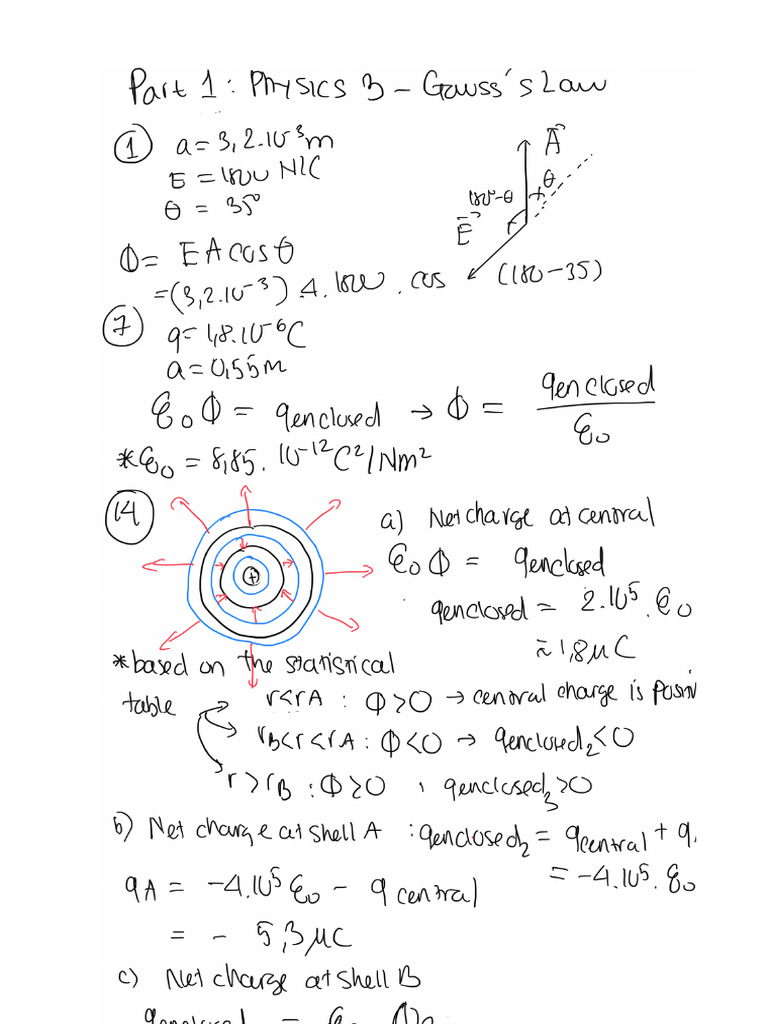 Part 1 : Physics 3 – Gauss's Law
① a = 3,2.10⁻³m
E = 1800 N/C
θ = 35°
A⃗
θ
180°-θ
E⃗
Φ = EAcosθ
= (3,2.10⁻³).4.1800.cos (180-35)
⑦ q = 1,8.10⁻⁶C
a = 0,55m
ε₀Φ = qenclosed → Φ = qenclosed / ε₀
*ε₀ = 8,85.10⁻¹²C²/Nm²
⑭ a) Net charge at central
+
ε₀Φ = qenclosed
qenclosed = 2.10⁵.ε₀
≈ 1,8μC
*based on the statistical
table
r<rA : Φ>0 → central charge is
rB<r<rA : Φ<0 → qenclosed₂<0
r>rB : Φ≥0 , qenclosed₃>0
b) Net charge at shell A : qenclosed₂ = qcentral + q
= -4.10⁵.ε₀
qA = -4.10⁵ε₀ - qcentral
= - 5,3μC
c) Net charge at shell B
qenclosed =